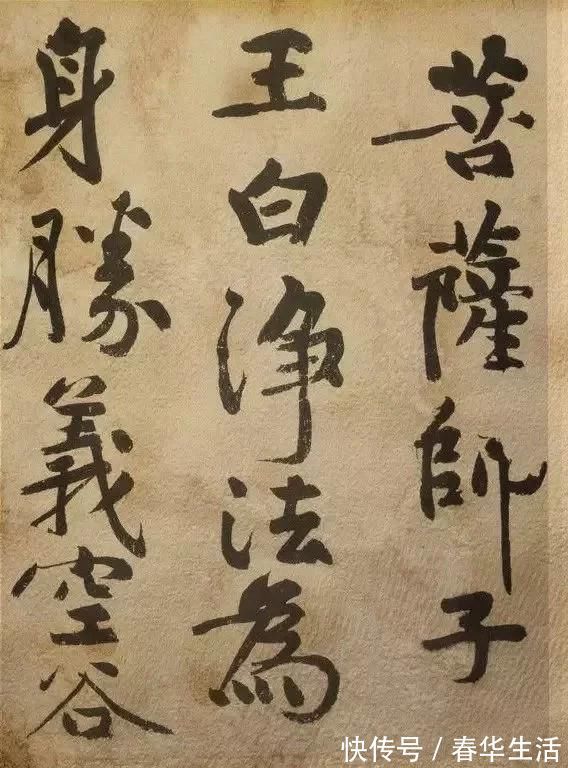 菩薩師子
王白浄法為
身勝義空谷
快传号/春华生活